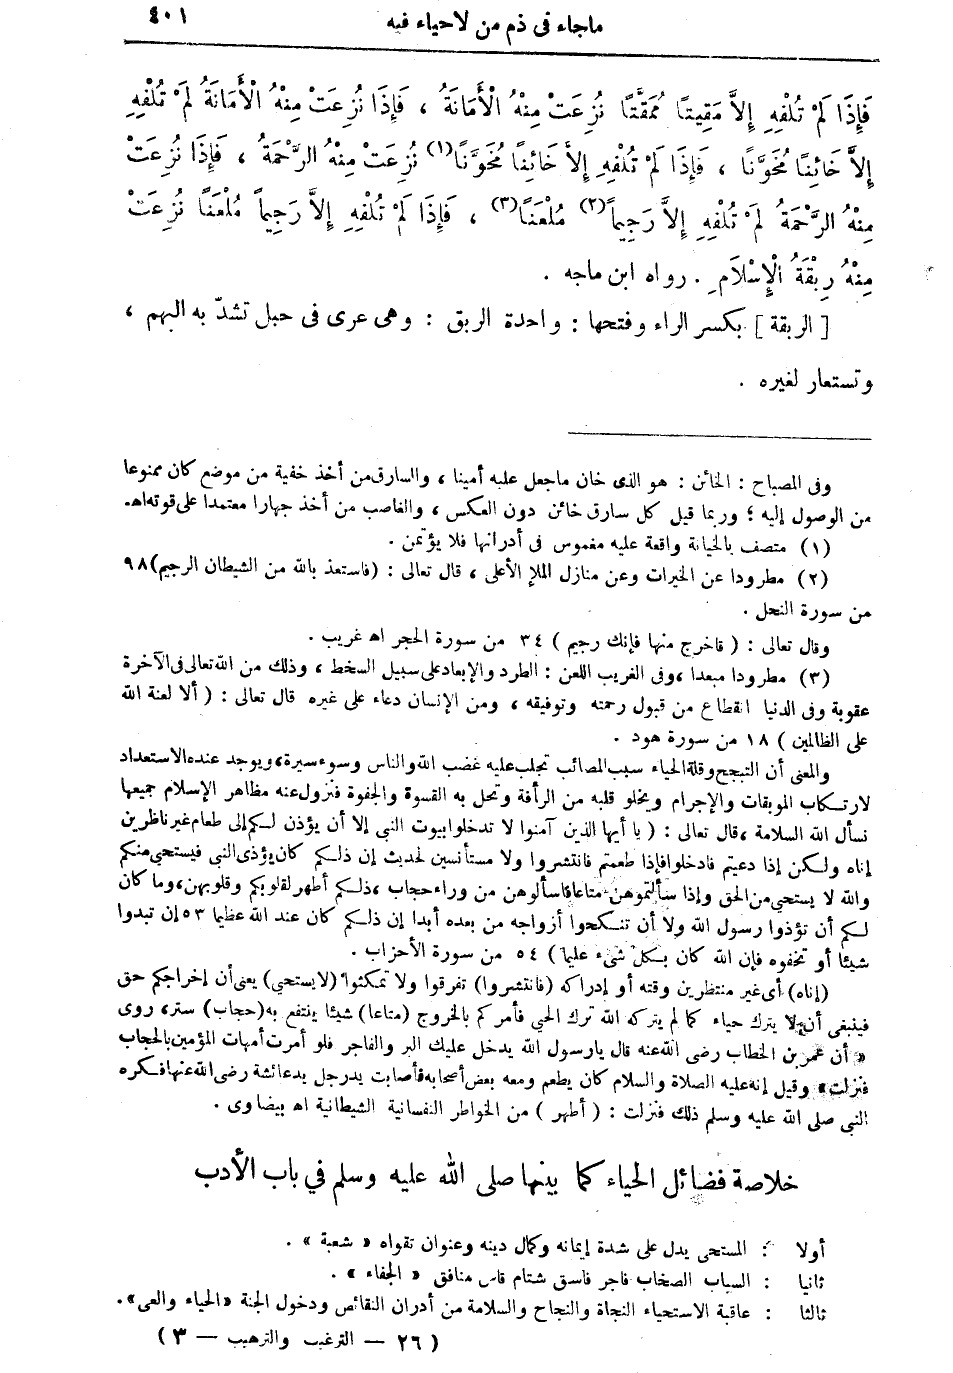 ماجاء فى ذم من لاحياء فيه ٤٠١
فَإِذَا لَمْ تُلْفِهِ إِلاَّ مَقِيتًا مُمَقَّتًا نُزِعَتْ مِنْهُ الْأَمَانَةُ ، فَإِذَا نُزِعَتْ مِنْهُ الْأَمَانَةُ لَمْ تُلْفِهِ
إِلاَّ خَائِنًا مُخَوَّنًا ، فَإِذَا لَمْ تُلْفِهِ إِلاَّ خَائِنًا مُخَوَّنًا(١) نُزِعَتْ مِنْهُ الرَّحْمَةُ ، فَإِذَا نُزِعَتْ
مِنْهُ الرَّحْمَةُ لَمْ تُلْفِهِ إِلاَّ رَجِيماً(٢) مُلْعَنًا(٣) ، فَإِذَا لَمْ تُلْفِهِ إِلاَّ رَجِيماً مُلْعَنًا نُزِعَتْ
مِنْهُ رِبْقَةُ الْإِسْلَامِ . رواه ابن ماجه .
[ الربقة ] بكسر الراء وفتحها : واحدة الربق : وهى عرى فى حبل تشدّ به البهم ،
وتستعار لغيره .
وفى المصباح : الخائن : هو الذى خان ماجعل عليه أمينا ، والسارق من أخذ خفية من موضع كان ممنوعا
من الوصول إليه ؛ وربما قيل كل سارق خائن دون العكس ، والغاصب من أخذ جهارا معتمدا على قوته اهـ
(١) متصف بالخيانة واقعة عليه مغموس فى أدرانها فلا يؤتمن .
(٢) مطرودا عن الخيرات وعن منازل الملإ الأعلى ، قال تعالى : (فاستعذ بالله من الشيطان الرجيم) ٩٨
من سورة النحل .
وقال تعالى : ( فاخرج منها فإنك رجيم ) ٣٤ من سورة الحجر اهـ غريب .
(٣) مطرودا مبعدا ، وفى الغريب اللعن : الطرد والإبعاد على سبيل السخط ، وذلك من الله تعالى فى الآخرة
عقوبة وفى الدنيا انقطاع من قبول رحمته وتوفيقه ، ومن الإنسان دعاء على غيره قال تعالى : ( ألا لعنة الله
على الظالمين ) ١٨ من سورة هود .
والمعنى أن التبجح وقلة الحياء سبب المصائب تجلب عليه غضب الله والناس وسوء سيرة، ويوجد عنده الاستعداد
لارتكاب الموبقات والإجرام ويخلو قلبه من الرأفة وتحل به القسوة والجفوة فتزول عنه مظاهر الإسلام جميعها
نسأل الله السلامة ، قال تعالى : ( يا أيها الذين آمنوا لا تدخلوا بيوت النبى إلا أن يؤذن لكم إلى طعام غير ناظرين
إناه ولكن إذا دعيتم فادخلوا فإذا طعمتم فانتشروا ولا مستأنسين لحديث إن ذلكم كان يؤذى النبى فيستحى منكم
والله لا يستحى من الحق وإذا سألتموهن متاعا فاسألوهن من وراء حجاب ، ذلكم أطهر لقلوبكم وقلوبهن ، وما كان
لكم أن تؤذوا رسول الله ولا أن تنكحوا أزواجه من بعده أبدا إن ذلكم كان عند الله عظيما ٥٣ إن تبدوا
شيئا أو تخفوه فإن الله كان بكل شىء عليما ) ٥٤ من سورة الأحزاب .
(إناه) أى غير منتظرين وقته أو إدراكه (فانتشروا) تفرقوا ولا تمكثوا (لا يستحى) يعنى أن إخراجكم حق
فينبغى أن لا يترك حياء كما لم يتركه الله ترك الحيى فأمركم بالخروج (متاعا) شيئا ينتفع به (حجاب) ستر، روى
« أن عمر بن الخطاب رضى الله عنه قال يا رسول الله يدخل عليك البر والفاجر فلو أمرت أمهات المؤمنين بالحجاب
فنزلت » وقيل إنه عليه الصلاة والسلام كان يطعم ومعه بعض أصحابه فأصابت يد رجل يد عائشة رضى الله عنها فكره
النبى صلى الله عليه وسلم ذلك فنزلت : ( أطهر ) من الخواطر النفسانية الشيطانية اهـ بيضاوى .
خلاصة فضائل الحياء كما بينها صلى الله عليه وسلم في باب الأدب
أولا : المستحى يدل على شدة إيمانه وكمال دينه وعنوان تقواه « شعبة » .
ثانيا : السباب الصخاب فاجر فاسق شتام قاس منافق « الجفاء » .
ثالثا : عاقبة الاستحياء النجاة والنجاح والسلامة من أدران النقائص ودخول الجنة «الحياء والعى» .
( ٢٦ — الترغيب والترهيب — ٣ )